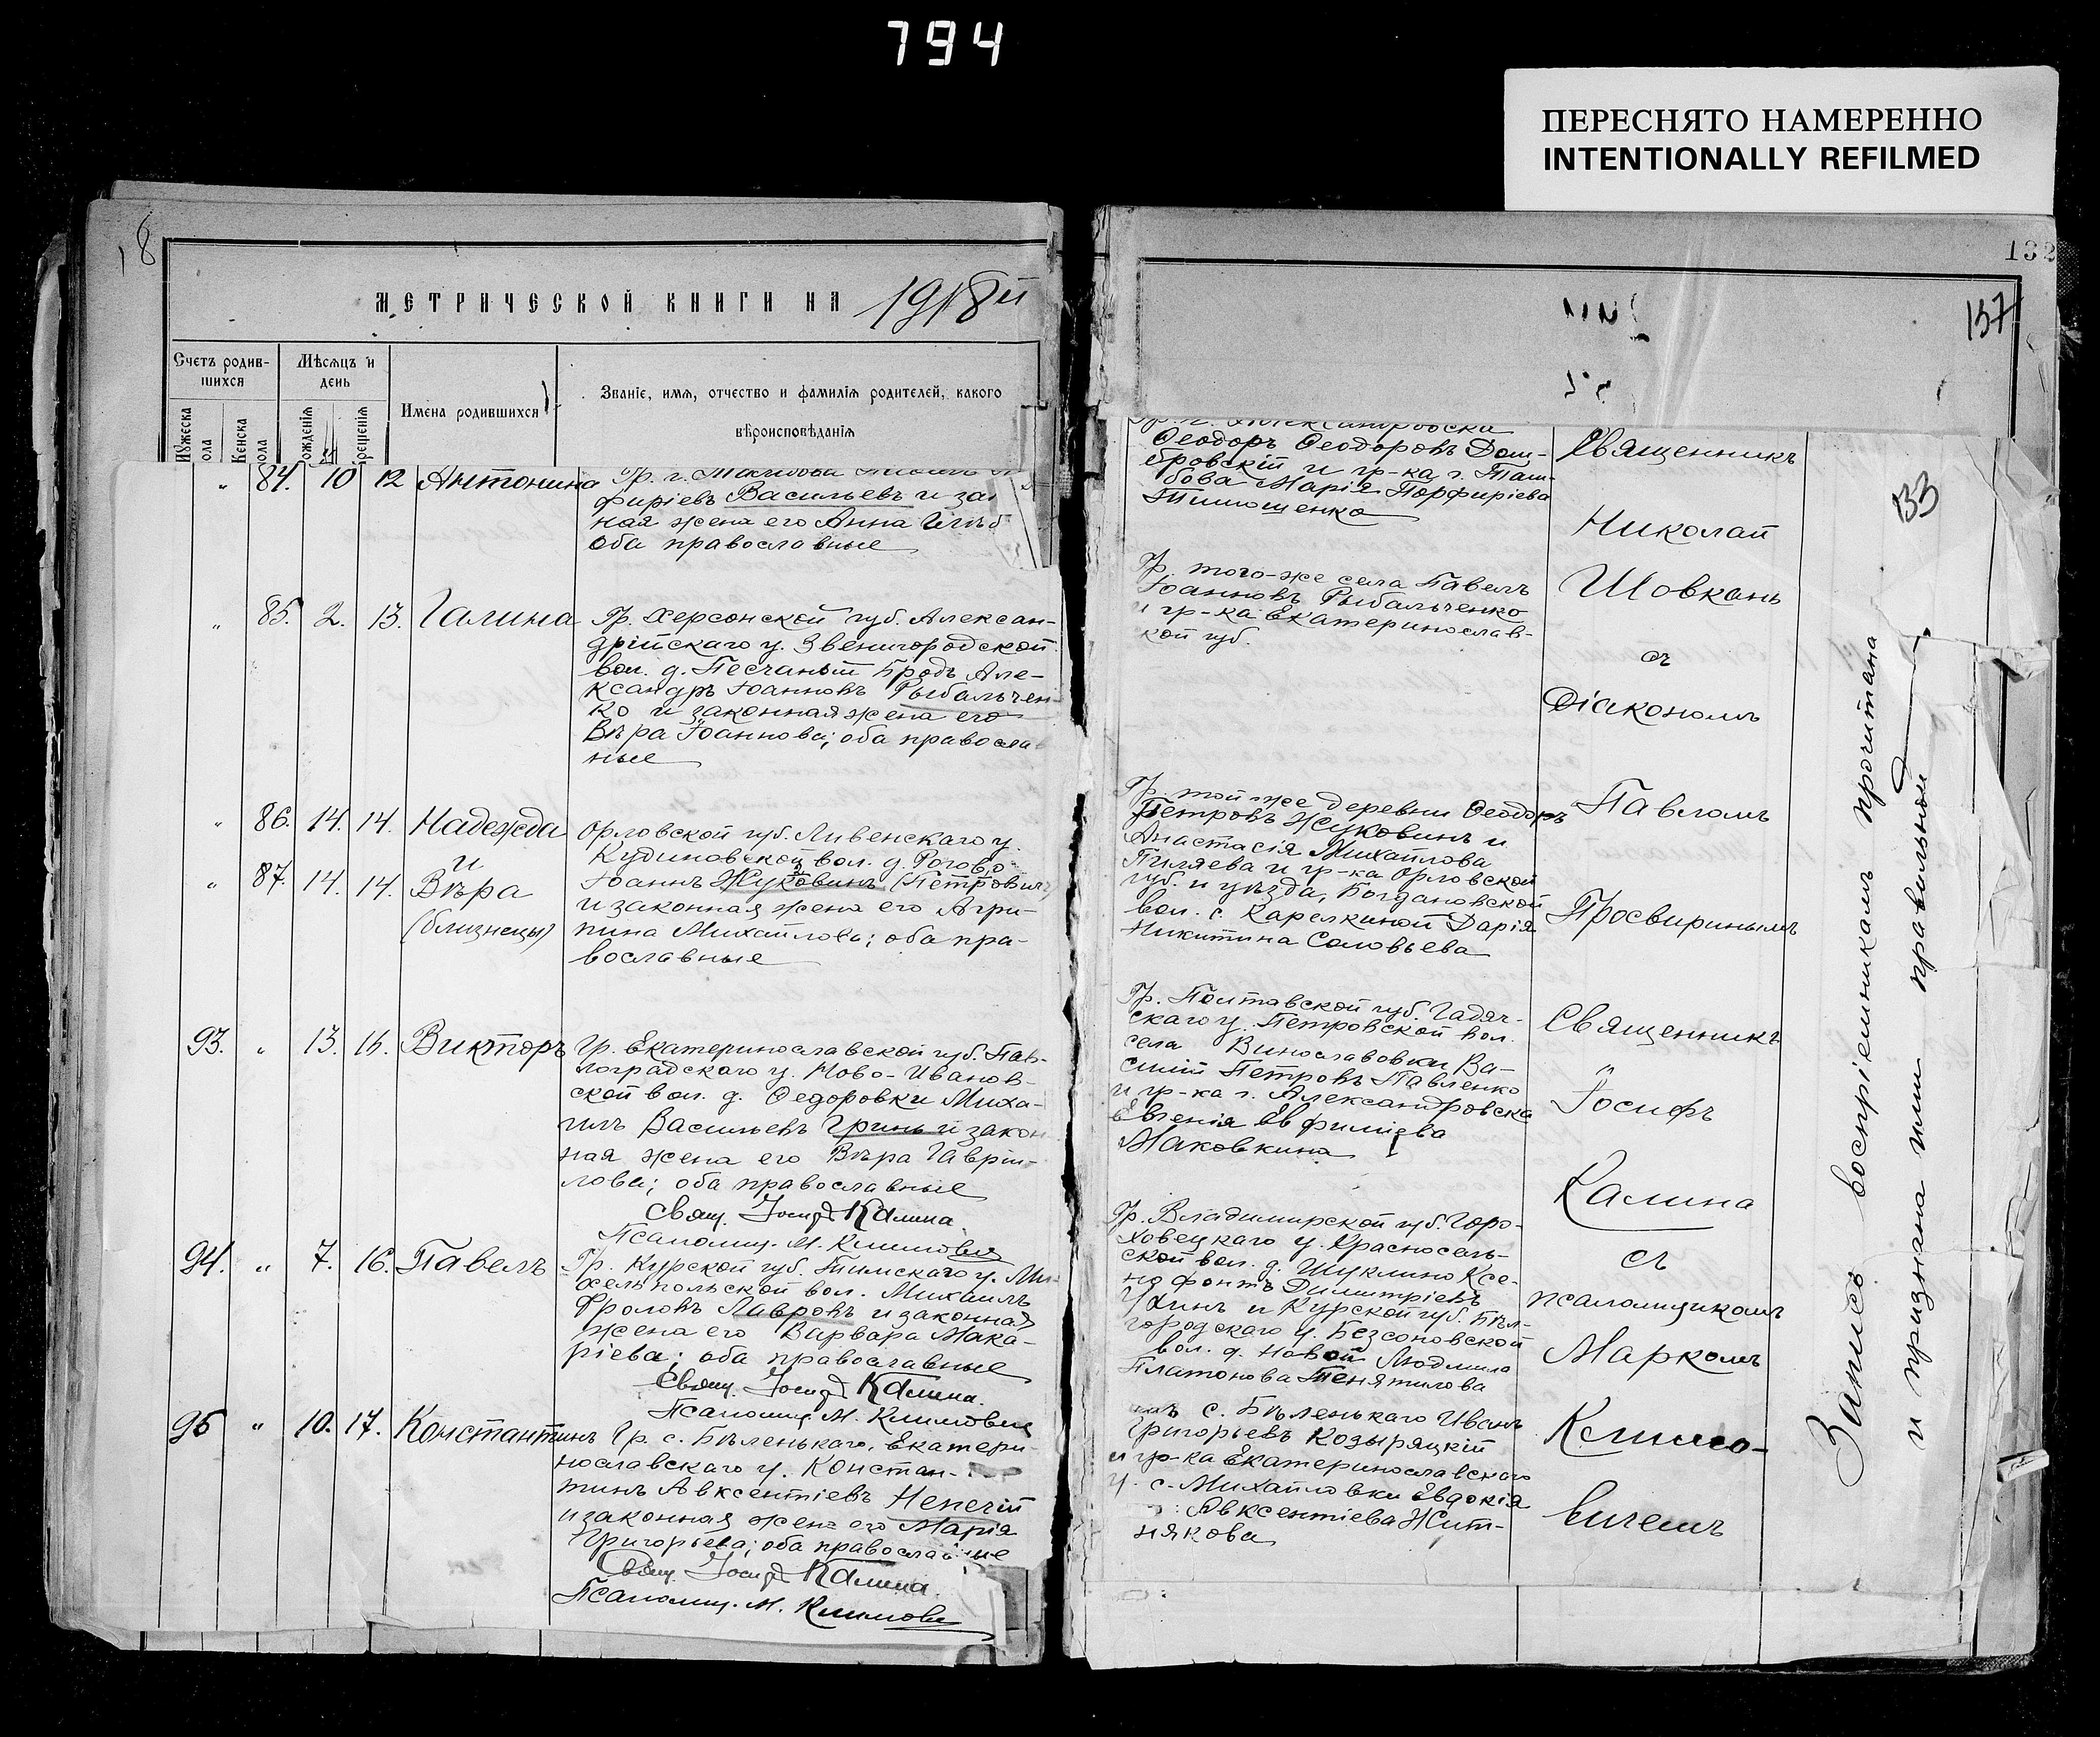 794
ПЕРЕСНЯТО НАМЕРЕННО
INTENTIONALLY REFILMED
18
132
МЕТРИЧЕСКОЙ КНИГИ НА 1918й
137
Счетъ родив-
шихся
Мѣсяцъ и
день
Имена родившихся
Званіе, имя, отчество и фамилія родителей, какого
вѣроисповѣданія
Мужеска
пола
Женска
пола
рожденія
крещенія
" 84. 10 12 Антонина Гр. г.
фиріевъ Васильевъ и за
ная жена его Анна
оба православные
" 85. 2. 13. Галина Гр. Херсонской губ. Алексан-
дрійскаго у. Звенигородской
вол. д. Песчаный Бродъ Але-
ксандръ Іоанновъ Рыбальчен-
ко и законная жена его
Вѣра Іоаннова; оба православ
ные
" 86. 14. 14. Надежда Орловской губ. Ливенскаго у.
и Кудиновской вол. д. Рогово
" 87. 14. 14. Вѣра Іоаннъ Жуковинъ (Петрович)
(близнецы) и законная жена его Агри-
пина Михайлова; оба пра-
вославные
93. " 13. 16. Викторъ Гр. Екатеринославской губ. Пав-
лоградскаго у. Ново-Иванов-
ской вол. д. Федоровки Миха-
илъ Васильевъ Гринь и закон
ная жена его Вѣра Гаврии-
лова; оба православные
Свящ. Іосифъ Калина.
Псаломщ. М. Климович
94. " 7. 16. Павелъ Гр. Курской губ. Тимскаго у. Ми-
хельпольской вол. Михаилъ
Фроловъ Лавровъ и законная
жена его Варвара Мака-
ріева; оба православные
Свящ. Іосифъ Калина.
Псаломщ. М. Климович
95 " 10. 17. Константинъ Гр. с. Бѣленькаго, Екатери-
нославскаго у. Констан-
тинъ Авксентіевъ Непечій
и законная жена его Марія
Григорьева; оба православные
Свящ. Іосифъ Калина.
Псаломщ. М. Климович
Гр. г. Александровска
Ѳеодоръ Ѳеодоровъ Дом-
бровскій и гр-ка г. Там-
бова Марія Порфиріева
Тимошенко
Гр. того-же села Павелъ
Іоанновъ Рыбальченко
и гр-ка Екатеринослав-
кой губ.
Гр. той же деревни Ѳеодоръ
Петровъ Жуковинъ и
Анастасія Михайлова
Пиляева и гр-ка Орловской
губ. и уѣзда, Богдановской
вол. с. Карелкиной Дарія
Никитина Соловьева
Гр. Полтавской губ. Гадяч-
скаго у. Петровской вол.
села Винославовки Ва-
силій Петровъ Павленко
и гр-ка г. Александровска
Евгенія Евфиміева
Маковкина
Гр. Владимирской губ. Горо-
ховецкаго у. Красносель-
ской вол. д. Шуклино Ксе-
нофонтъ Димитріевъ
Ухинъ и Курской губ. Бѣл-
городскаго у. Безсоновской
вол. д. Новой Людмила
Платонова Тенятилова
с. Бѣленькаго Иванъ
Григорьевъ Козыряцкій
и гр-ка Екатеринославскаго
у. с. Михайловки Евдокія
Авксентіева Жит-
някова
Священникъ
Николай
Шовкань
съ
Діакономъ
Павломъ
Просвиринымъ
Священникъ
Іосифъ
Калина
съ
псаломщикомъ
Маркомъ
Климо-
вичемъ
133
Запись воспріемникамъ прочитана
и признана ими правильной